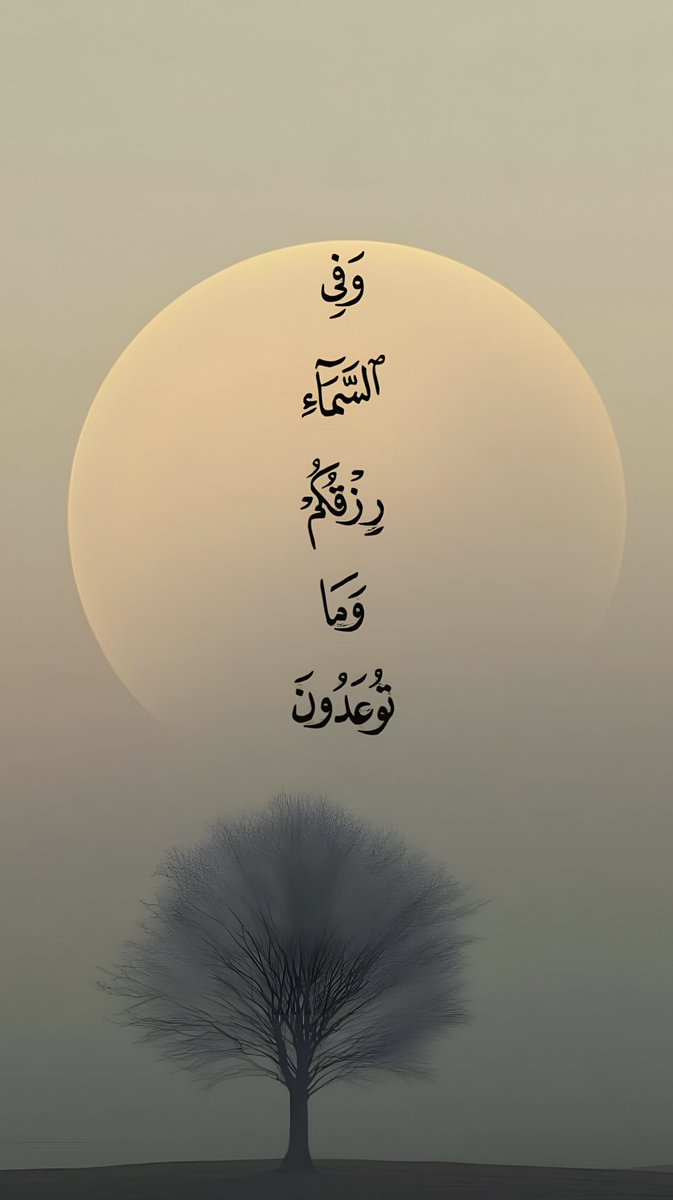 وَفِى
ٱلسَّمَآءِ
رِزْقُكُمْ
وَمَا
تُوعَدُونَ